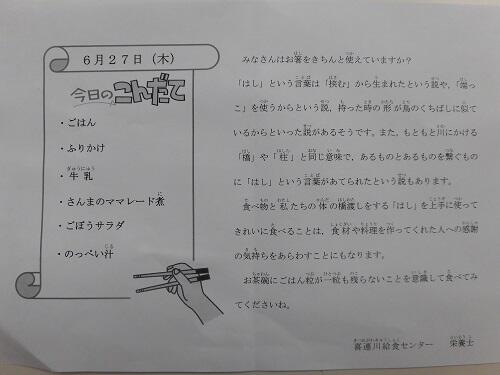 6月27日（木）
今日のこんだて
・ごはん
・ふりかけ
・牛乳
・さんまのママレード煮
・ごぼうサラダ
・のっぺい汁
みなさんはお箸をきちんと使えていますか？
「はし」という言葉は「挟む」から生まれたという説や，「端っ
こ」を使うからという説，持った時の形が鳥のくちばしに似て
いるからといった説があるそうです。また，もともと川にかける
「橋」や「柱」と同じ意味で，あるものとあるものを繋ぐもの
に「はし」という言葉があてられたという説もあります。
食べ物と私たちの体の橋渡しをする「はし」を上手に使って
きれいに食べることは，食材や料理を作ってくれた人への感謝
の気持ちをあらわすことにもなります。
お茶碗にごはん粒が一粒も残らないことを意識して食べてみ
てくださいね。
喜連川給食センター　栄養士